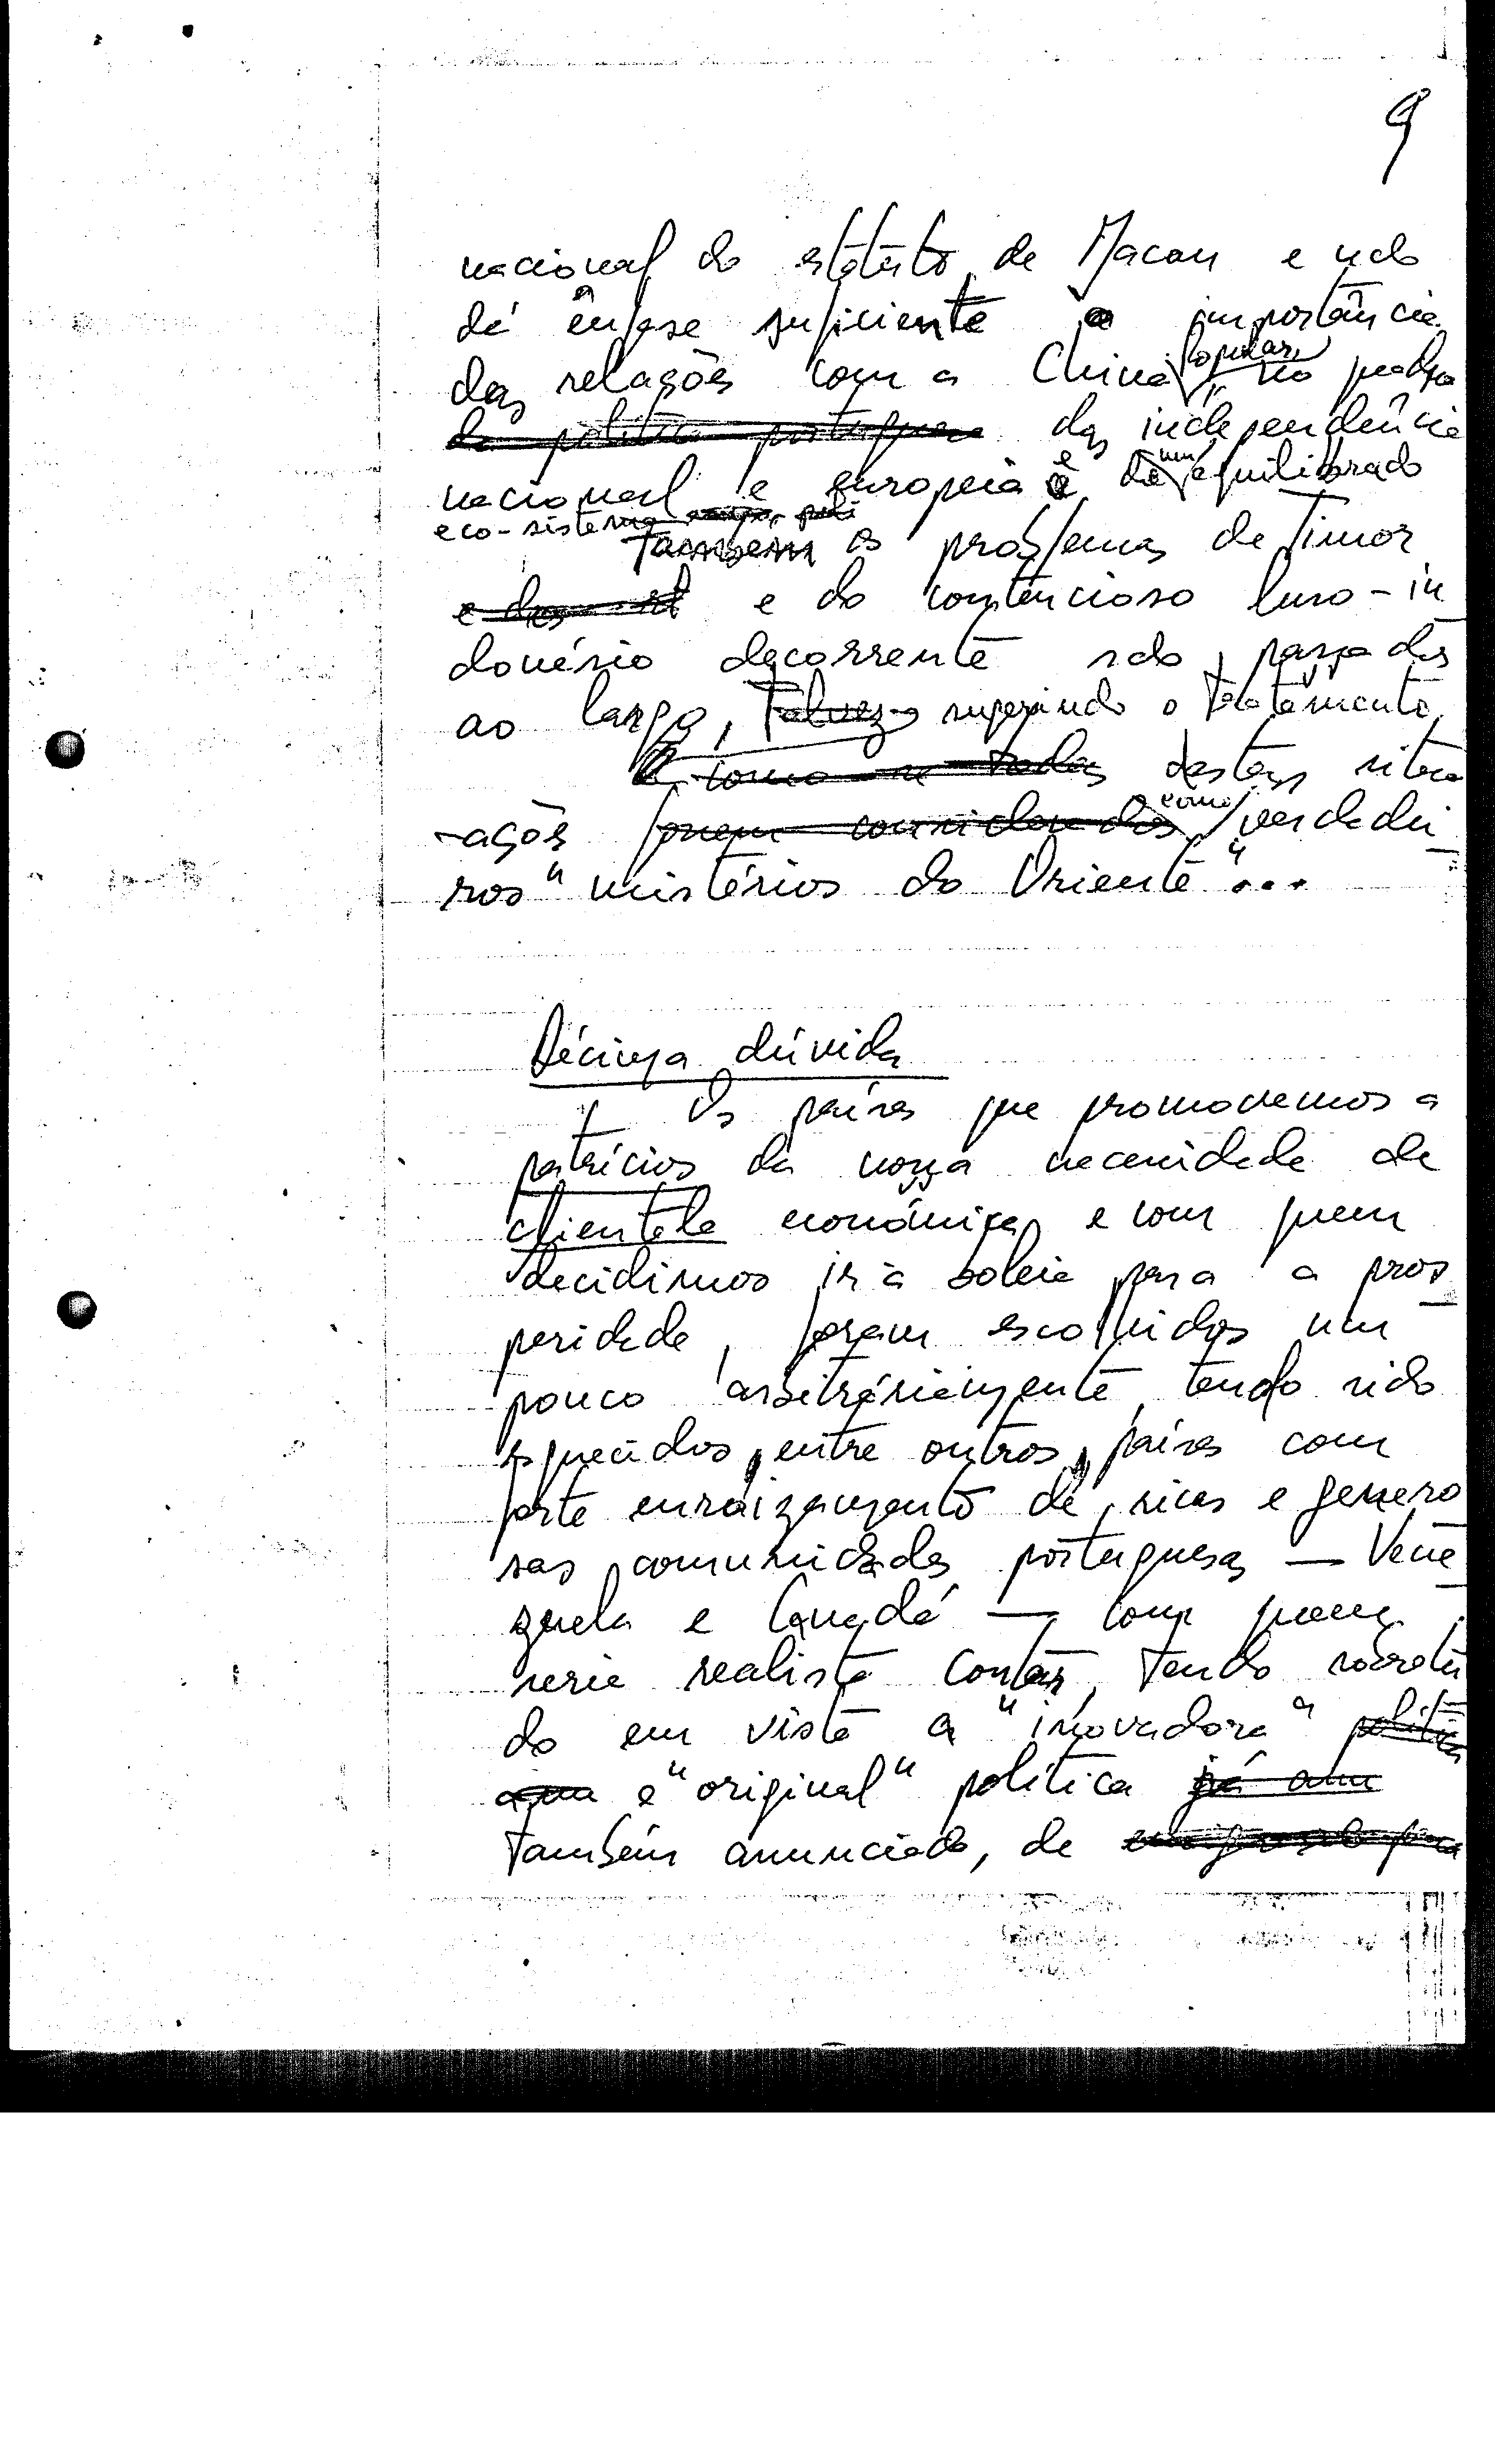 9
nacional do estatuto de Macau e não
dá ênfase suficiente à importância
das relações com a China Popular, no
da política portuguesa das independência
nacional e europeia e de um equilibrado
eco-sistema
Também os problemas de Timor
e do contencioso luso-in
donésio decorrente são passados
ao largo, Talvez sugerindo o tratamento
como se todas destas situ
-ações fossem consideradas como verdadei
ros "mistérios do Oriente"...
Décima dúvida
Os países que promovemos a
patrícios da nossa necessidade de
clientela económica, e com quem
decidimos ir à boleia para a pros
peridade, foram escolhidos um
pouco arbitráriamente, tendo sido
esquecidos, entre outros, países com
forte enraizamento de ricas e genero
sas comunidades portuguesas — Vene
zuela e Canadá — com quem
seria realista contar, tendo sobretu
do em vista a "inovadora" política
e "original" política já
também anunciada, de